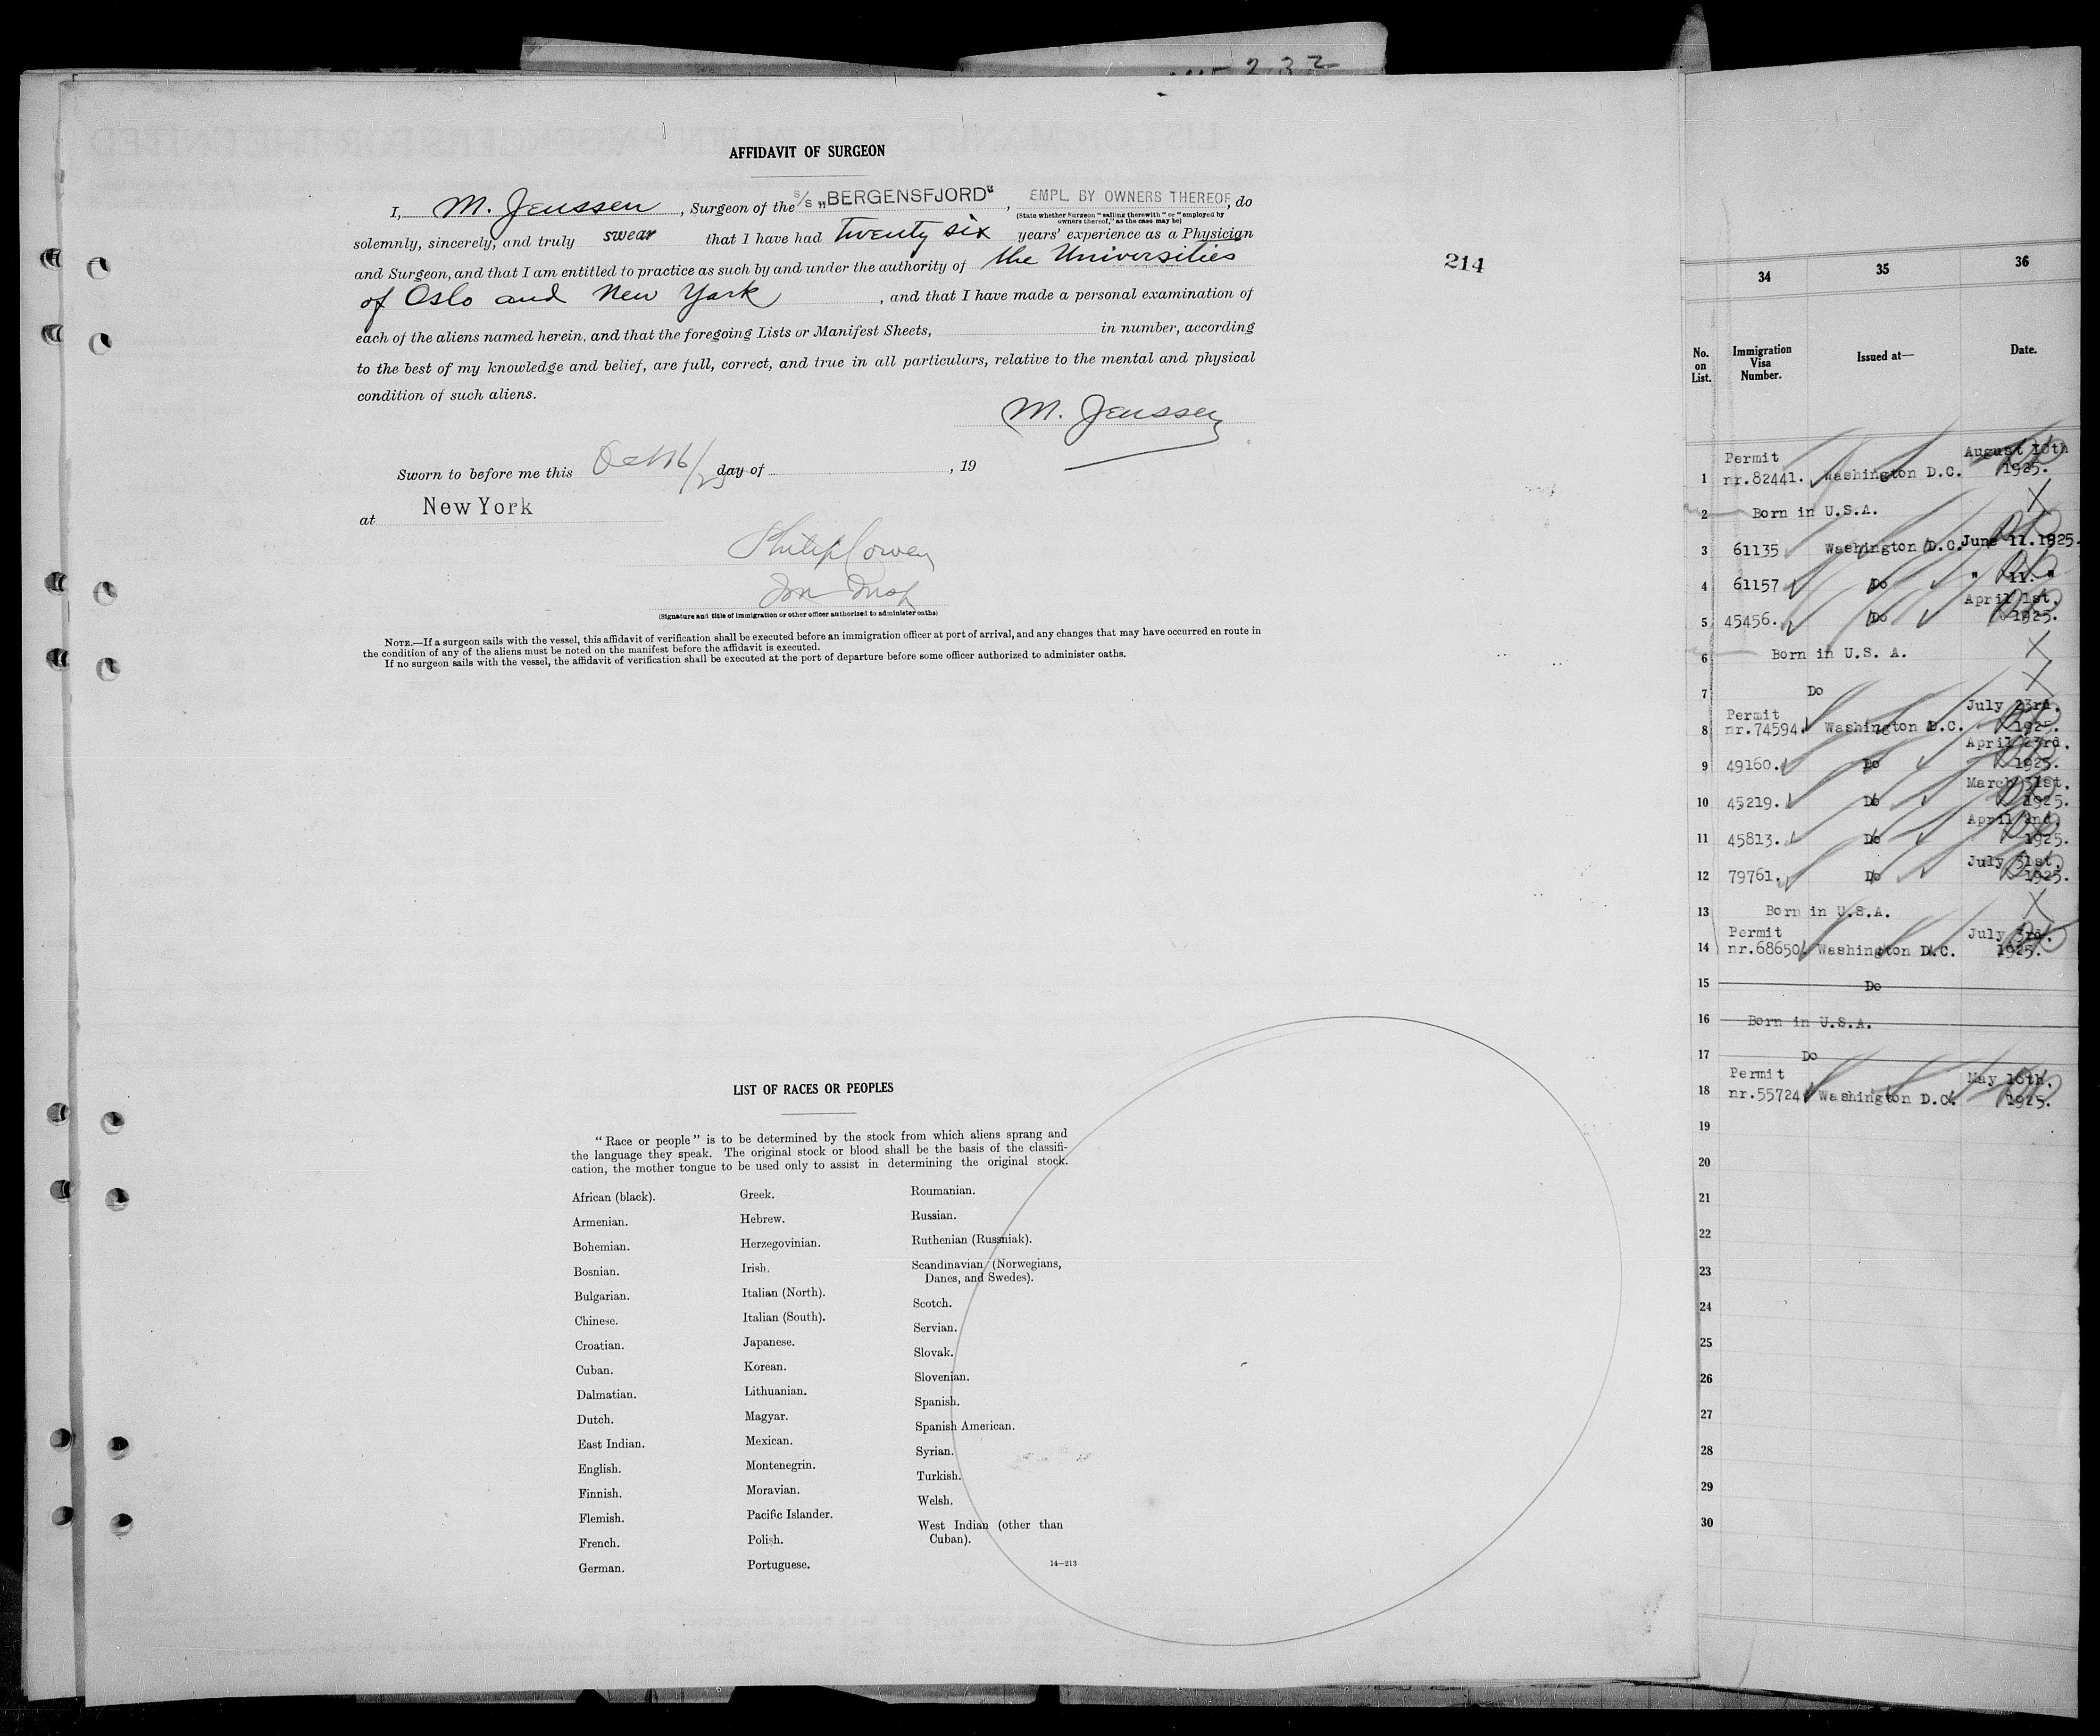 AFFIDAVIT OF SURGEON
I, M. Jenssen, Surgeon of the s/s "BERGENSFJORD", EMPL. BY OWNERS THEREOF, do
(State whether Surgeon "sailing therewith" or "employed by
owners thereof," as the case may be)
solemnly, sincerely, and truly swear that I have had twenty six years' experience as a Physician
and Surgeon, and that I am entitled to practice as such by and under the authority of the Universities
of Oslo and New York, and that I have made a personal examination of
each of the aliens named herein, and that the foregoing Lists or Manifest Sheets, in number, according
to the best of my knowledge and belief, are full, correct, and true in all particulars, relative to the mental and physical
condition of such aliens.
M. Jenssen
Sworn to before me this Oct 16/25 day of , 19
at New York
Philip Cowen
(Signature and title of immigration or other officer authorized to administer oaths)
NOTE.—If a surgeon sails with the vessel, this affidavit of verification shall be executed before an immigration officer at port of arrival, and any changes that may have occurred en route in
the condition of any of the aliens must be noted on the manifest before the affidavit is executed.
If no surgeon sails with the vessel, the affidavit of verification shall be executed at the port of departure before some officer authorized to administer oaths.
214
LIST OF RACES OR PEOPLES
"Race or people" is to be determined by the stock from which aliens sprang and
the language they speak. The original stock or blood shall be the basis of the classifi-
cation, the mother tongue to be used only to assist in determining the original stock.
African (black).
Armenian.
Bohemian.
Bosnian.
Bulgarian.
Chinese.
Croatian.
Cuban.
Dalmatian.
Dutch.
East Indian.
English.
Finnish.
Flemish.
French.
German.
Greek.
Hebrew.
Herzegovinian.
Irish.
Italian (North).
Italian (South).
Japanese.
Korean.
Lithuanian.
Magyar.
Mexican.
Montenegrin.
Moravian.
Pacific Islander.
Polish.
Portuguese.
Roumanian.
Russian.
Ruthenian (Russniak).
Scandinavian (Norwegians,
Danes, and Swedes).
Scotch.
Servian.
Slovak.
Slovenian.
Spanish.
Spanish American.
Syrian.
Turkish.
Welsh.
West Indian (other than
Cuban).
14—213
34 35 36
No. on List. Immigration Visa Number. Issued at— Date.
Permit August 10th
1 nr.82441. Washington D.C. 1925.
2 Born in U.S.A.
3 61135 Washington D.C. June 11.1925.
4 61157 Do " 11. "
April 1st.
5 45456. Do 1925.
6 Born in U.S. A.
7 Do
Permit July 23rd.
8 nr.74594. Washington D.C. 1925.
April 23rd.
9 49160. Do 1925.
March 31st.
10 45219. Do 1925.
April 2nd.
11 45813. Do 1925.
July 31st.
12 79761. Do 1925.
13 Born in U.S.A.
Permit July 3rd.
14 nr.68650. Washington D.C. 1925.
15 Do
16 Born in U.S.A.
17 Do
Permit May 16th.
18 nr.55724 Washington D.C. 1925.
19
20
21
22
23
24
25
26
27
28
29
30